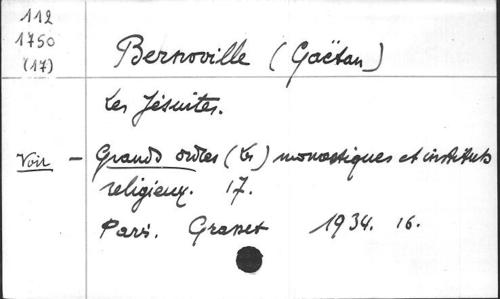 112
1750
(17)
Bernoville (Gaëtan)
Les Jésuites.
Voir - Grands ordres (Les) monastiques et instituts
religieux. 17.
Paris. Grasset 1934. 16.